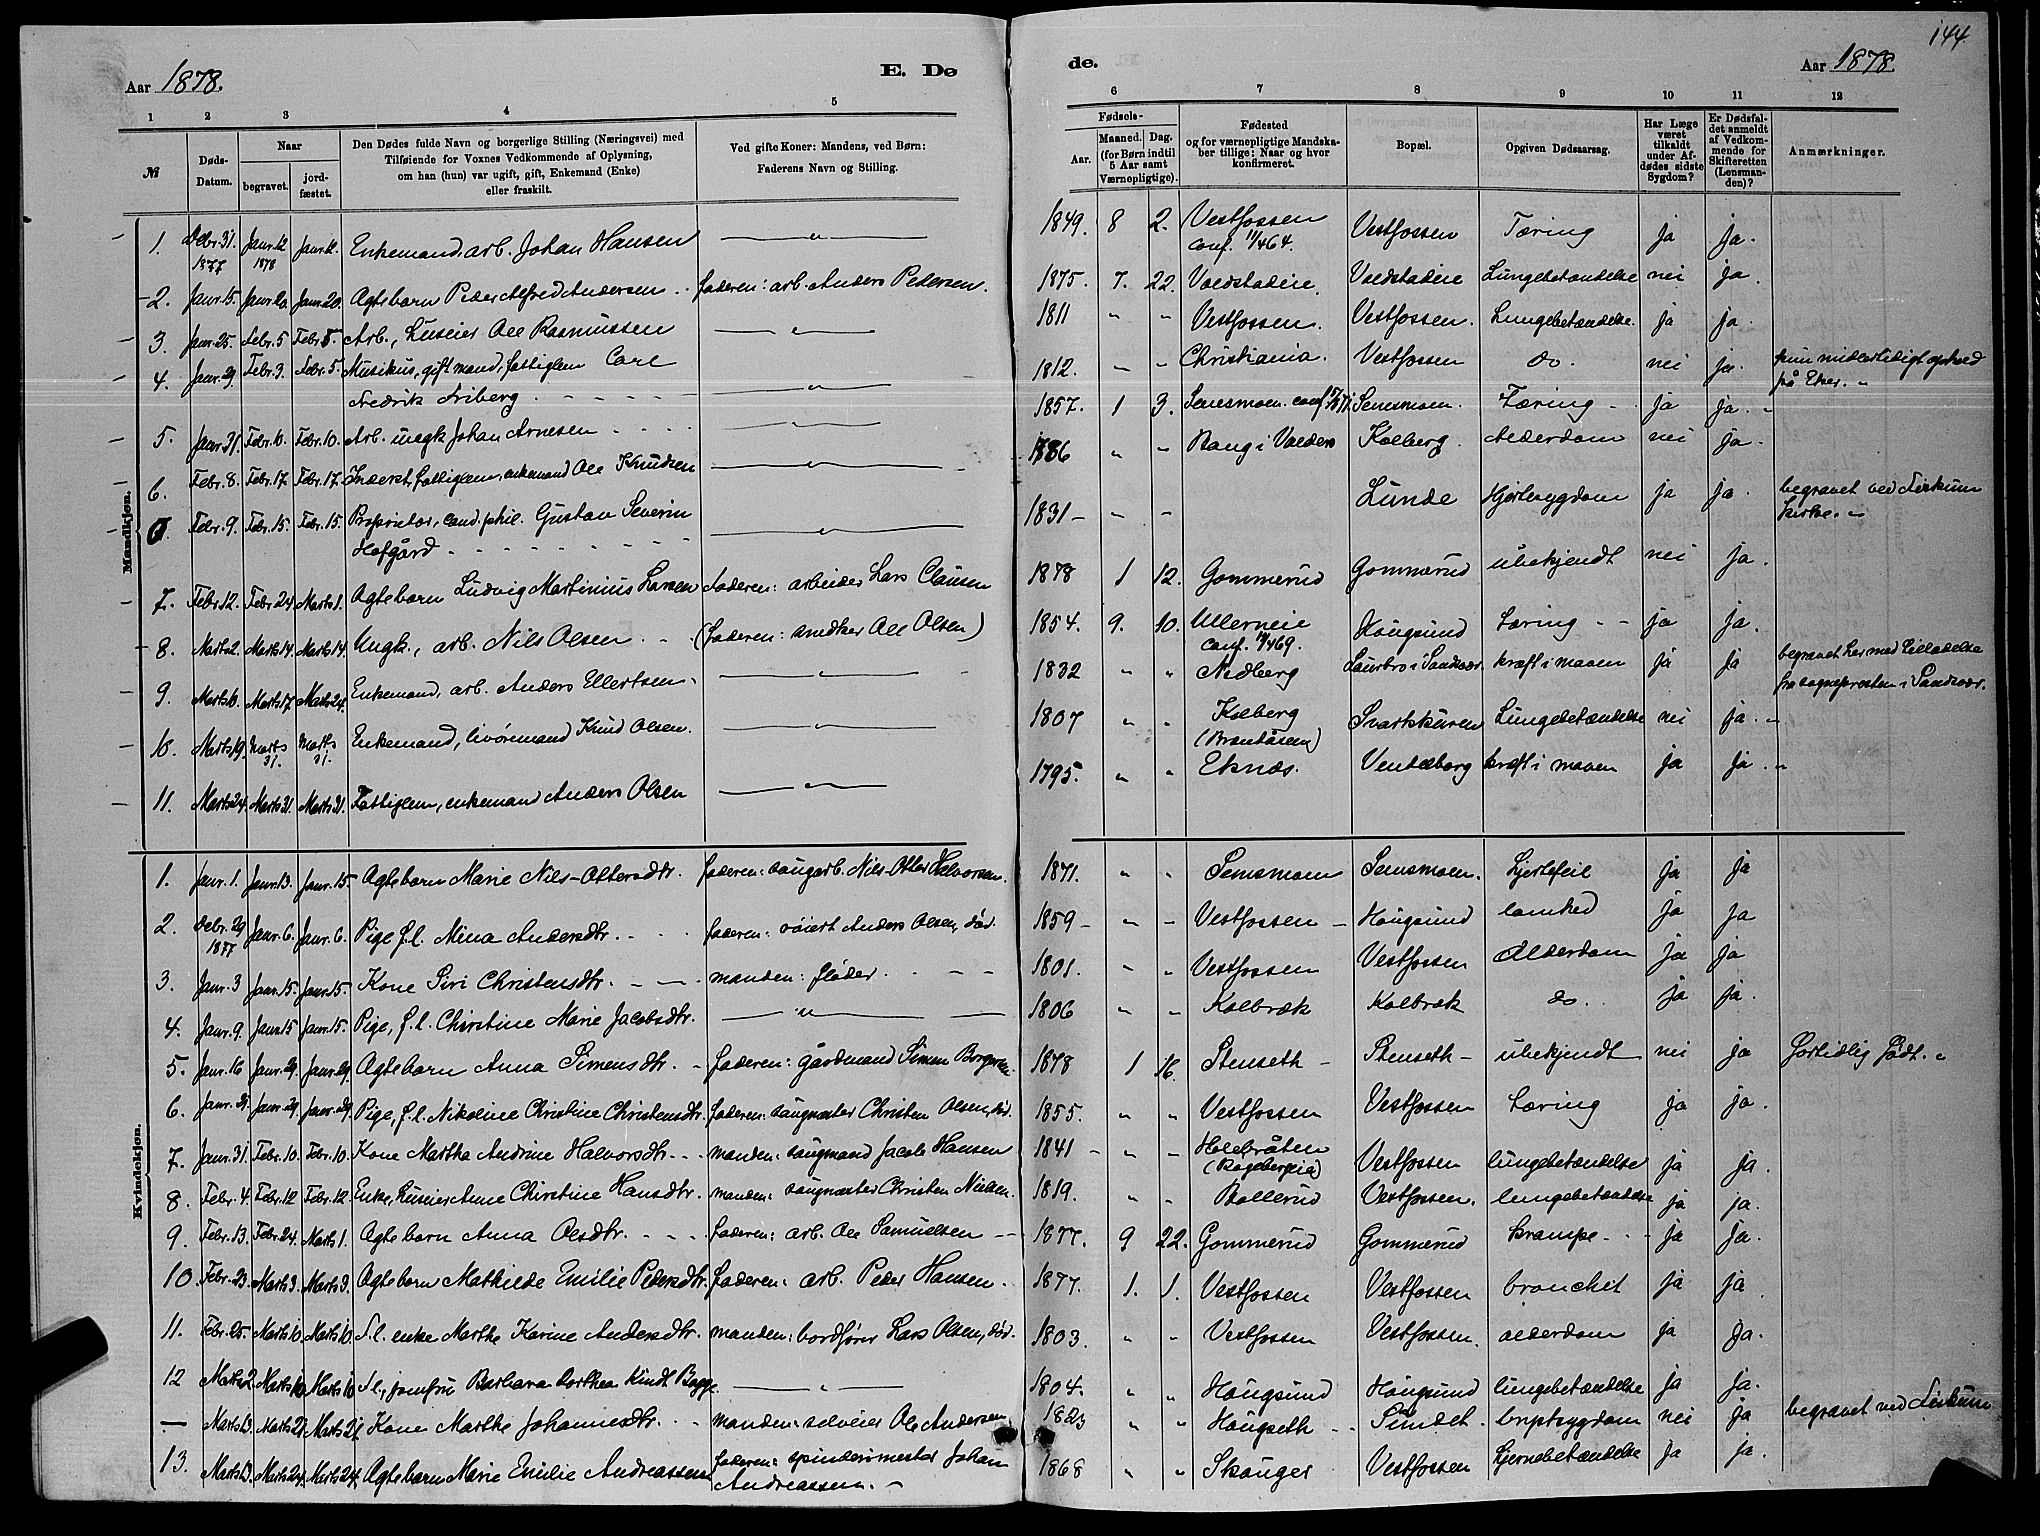 144
Aar 1878. E. Dø
de. Aar 1878.
1 2 3 4 5
6 7 8 9 10 11 12
№ Døds-Datum. Naar begravet. jordfæstet. Den Dødes fulde Navn og borgerlige Stilling (Næringsvei) med Tilføiende for Voxnes Vedkommende af Oplysning, om han (hun) var ugift, gift, Enkemand (Enke) eller fraskilt. Ved gifte Koner: Mandens, ved Børn: Faderens Navn og Stilling.
Fødsels- Aar. Maaned. Dag. (for Børn indtil 5 Aar samt Værnepligtige). Fødested og for værnepligtige Mandskaber tillige: Naar og hvor konfirmeret. Bopæl. Opgiven Dødsaarsag. Har Læge været tilkaldt under Afdødes sidste Sygdom? Er Dødsfaldet anmeldt af Vedkommende for Skifteretten (Lensmanden)? Anmærkninger.
Mandkjøn.
1. Debr. 31. 1877 Janr. 12 1878 Janr. 12. Enkemand, arb. Johan Hansen — „ — 1849. 8 2. Vestfossen Conf. 11/4 64. Vestfossen Tæring ja ja.
2. Janr. 15. Janr. 20. Janr. 20. Ægtebarn Peder Alfred Andersen . faderen: arb. Anders Pedersen. 1875. 7. 22. Voldstadeie. Voldstadeie Lungebetændelse nei ja.
3. Janr. 25. Febr. 5 Febr. 5. Arb., huseier Ole Rasmussen — „ — 1811 „ „ Vestfossen. Vestfossen. Lungebetændelse. ja ja.
4. Janr. 29. Febr. 3. Febr. 5. Musikus, gift mand, fattiglem Carl
Fredrik Friberg - - - - — „ — 1812. „ „ Christiania. Vestfossen do. nei ja. kun midlertidigt ophold
på Eker. „
5. Janr. 31. Febr. 10. Febr. 10. Arb. ungk. Johan Arnesen - - - — „ — 1857. 1 3. Semsmoen. conf. Semsmoen. Tæring - ja ja. „
6. Febr. 8. Febr. 17 Febr. 17. Inderst, fattiglem, enkemand Ole Knudsen — „ — 1786 „ „ Bang i Valders Kolberg. Alderdom nei ja.
Febr. 9. Febr. 15. Febr. 15. Proprietær, cand. phil. Gustav Severin
Hofgård - - - - - — „ — 1831 - - - Lunde Hjertesygdom ja ja. begravet ved Fiskum
kirke. „
7. Febr. 12. Febr. 24. Marts 1. Ægtebarn Ludvig Martinius Larsen faderen: arbeider Lars Clausen 1878 1 12. Gommerud Gommerud ubekjendt nei ja.
8. Marts 2. Marts 14. Marts 14. Ungk., arb. Nils Olsen - - (faderen: snedker Ole Olsen) 1854. 9. 10. Ullerneie Conf. 69. Hougsund Tæring - - ja ja.
9. Marts 10. Marts 17. Marts 24. Enkemand, arb. Anders Ellertsen. — „ — 1832 „ „ Nedberg i Sandsvær. kræft i maven ja ja begravet her med Tilladelse
fra sognepresten i Sandsvær.
10. Marts 19. Marts 31. Marts 31. Enkemand, livøremand Knud Olsen. — „ — 1807 „ „ Kolberg (Brentåsen) Svartskuren Lungebetændelse nei ja. „
11. Marts 24. Marts 31. Marts 31. Fattiglem, enkemand Anders Olsen — „ — 1795. „ „ Eknæs. Vendeborg kræft i maven ja ja. „
Kvindekjøn.
1. Janr. 1. Janr. 13. Janr. 15 Ægtebarn Marie Nils-Ottersdtr. faderen: saugarb. Nils-Otter Halvorsen. 1871. „ „ Semsmoen Semsmoen. hjertefeil ja ja
2. Debr. 29 1877 Janr. 6. Janr. 6. Pige f.l. Mina Andersdtr. - - faderen: røiert Anders Olsen, død. 1859 - „ - Vestfossen - Hougsund lamhed ja ja
3. Janr. 3 Janr. 15. Janr. 15. Kone Siri Christensdtr. - - - manden: fløder. - - - 1801. „ „ Vestfossen Vestfossen Alderdom ja ja
4. Janr. 9. Janr. 15 Janr. 15. Pige, f.l. Christine Marie Jacobsdtr. — „ — 1806 „ „ Kolbræk Kolbræk do. . ja ja.
5. Janr. 16 Janr. 29. Janr. 29. Ægtebarn Anna Simensdtr. - faderen: gårdmand Simen Borgersen. 1878 1 16. Stenseth - Stenseth - ubekjendt nei ja fortidlig født. „
6. Janr. 21. Janr. 29. Janr. 29. Pige, f.l. Nikoline Christine Christensdtr. faderen: saugmester Christen Olsen, død. 1855. „ „ Vestfossen Vestfossen Tæring ja ja.
7. Janr. 31. Febr. 10. Febr. 10. Kone Marthe Andrine Halvorsdtr. - - manden: saugmand Jacob Hansen 1841 - „ - Holebråten Vestfossen lungebetændelse ja ja.
8. Febr. 4. Febr. 12 Febr. 12 Enke, huseier Anne Christine Hansdtr. manden: saugmester Christen Nielsen. 1819. „ „ Bollerud Vestfossen. lungebetændelse ja ja.
9. Febr. 13. Febr. 24. Marts 1. Ægtebarn Anna Olsdtr. - - - faderen: arb. Ole Samuelsen - - 1877. 9 22. Gommerud Gommerud krampe - - ja ja.
10. Febr. 23. Marts 3. Marts 3. Ægtebarn Mathilde Emilie Pedersdtr. faderen: arb. Peder Hansen. 1877. 1. 1. Vestfossen Vestfossen bronchit ja ja
11. Febr. 25. Marts 10. Marts 10. f.l. enke Marthe Karine Andersdtr. manden: bordfører Lars Olsen, død. 1803. „ „ Vestfossen Vestfossen. alderdom ja ja.
12 Marts 2. Marts 10. Marts 10 f.l., jomfru Barbara Dorthea Kindt Bagge — „ — 1804. „ „ Hougsund Hougsund lungebetændelse ja ja.
— Marts 13. Marts 21. Marts 21. Kone Marthe Johannesdtr. - - manden: selveier Ole Andersen. 1823 „ „ Hougseth - Sundet. brystsygdom nei ja begravet ved Fiskum
13. Marts 13. Marts 24. Marts 24. Ægtebarn Marie Emilie Andreassen faderen: spinderimester Johan
Andreassen. - 1868 „ „ Skouger Vestfossen hjernebetændelse ja ja.